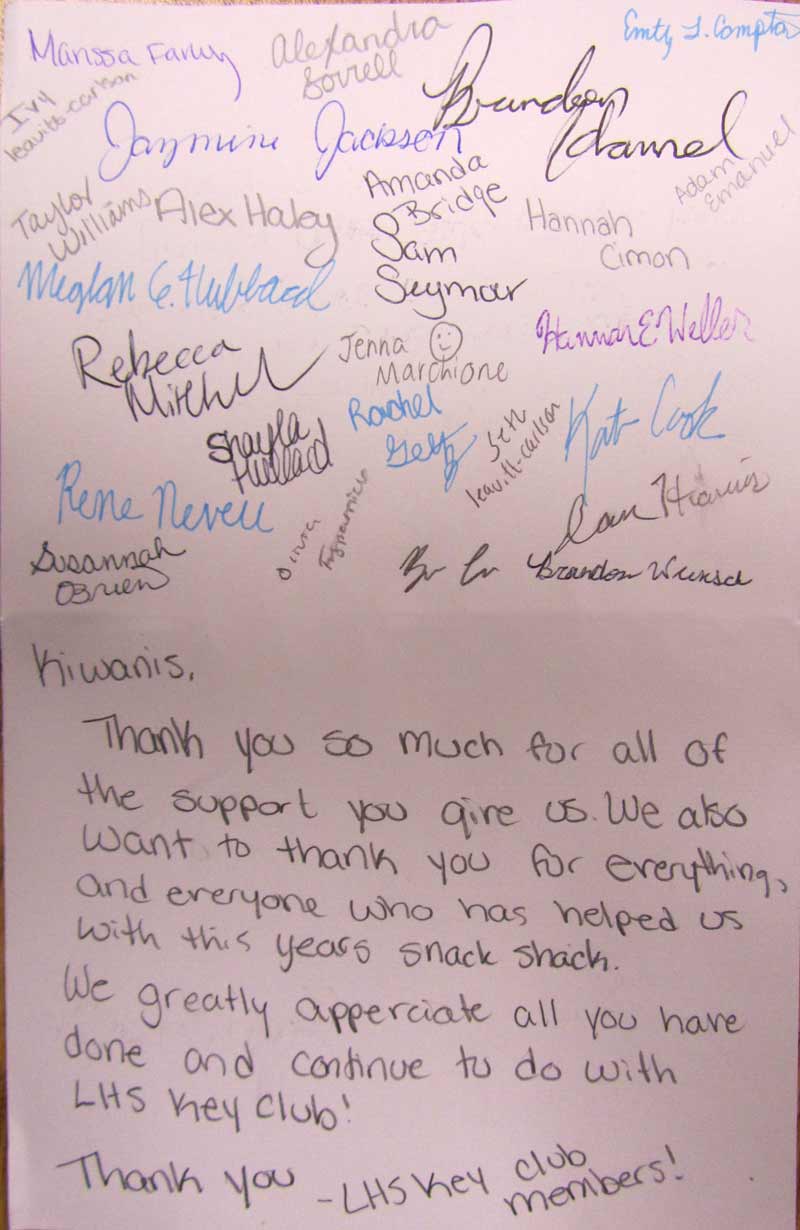 Marissa
Alexandra
Sorrell
Emily J. Compton
Ivy
leavitt-carlson
Jazmine Jackson
Brandon
Adam
Emanuel
Taylor
Williams
Alex Haley
Amanda
Bridge
Hannah
Cimon
Sam
Seymour
Meghan E. Hubbard
Rebecca
Mitchell
Jenna
Marchione
Hannah E Weller
Shayla
Hubbard
Rachel
Getz
Seth
leavitt-carlson
Kate Cook
Rene Neveu
Susannah
OBrien
Olivia
Brandon
Kiwanis,
Thank you so much for all of
the support you give us. We also
want to thank you for everything,
and everyone who has helped us
with this years snack shack.
We greatly apperciate all you have
done and continue to do with
LHS Key Club!
Thank you -LHS Key club
members!